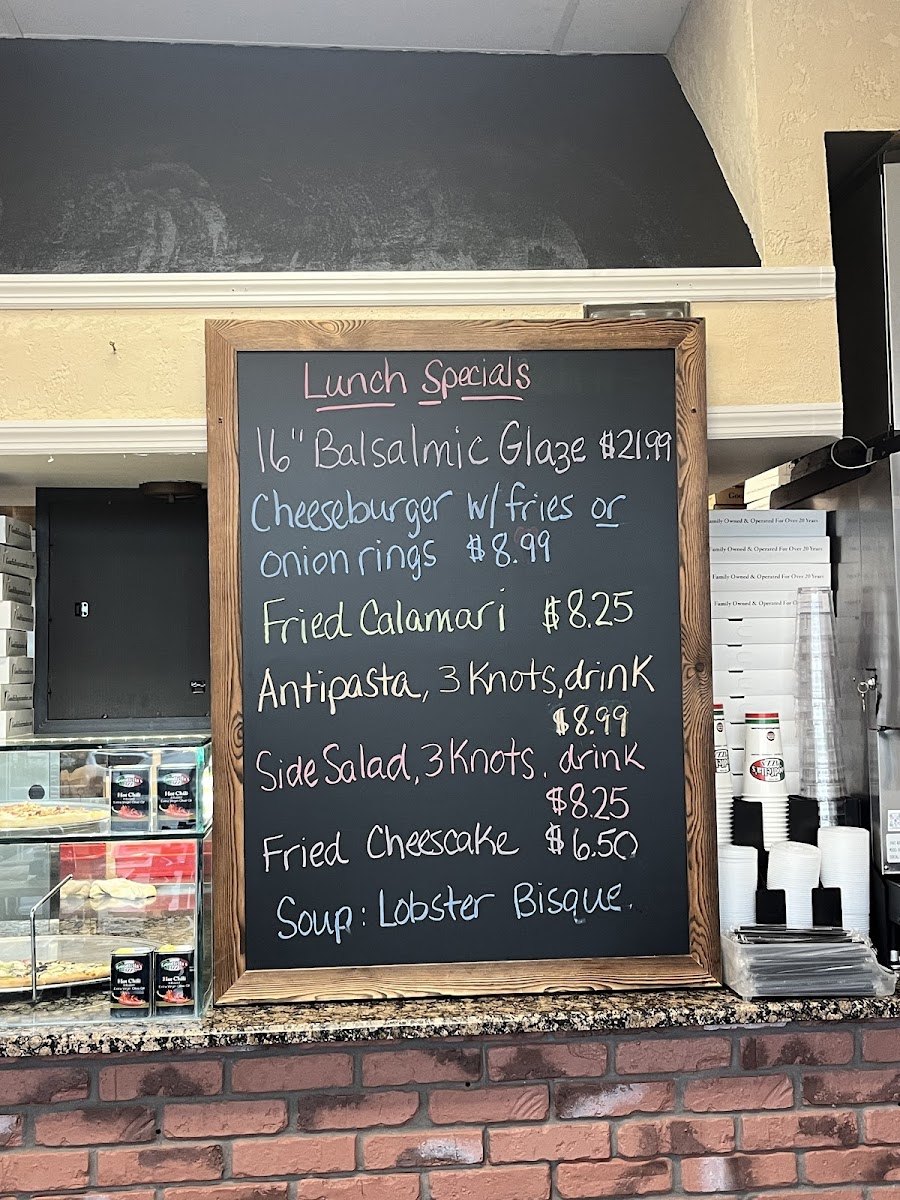 Lunch Specials
16" Balsalmic Glaze $21.99
Cheeseburger w/fries or
onion rings $8.99
Fried Calamari $8.25
Antipasta, 3 Knots, drink
$8.99
Side Salad, 3 Knots, drink
$8.25
Fried Cheescake $6.50
Soup: Lobster Bisque.
Family Owned & Operated For Over 20 Years
Family Owned & Operated For Over 20 Years
Family Owned & Operated For Over 20 Years
Family Owned & Operated For
Hot Chili
Hot Chili
Hot Chili
Hot Chili